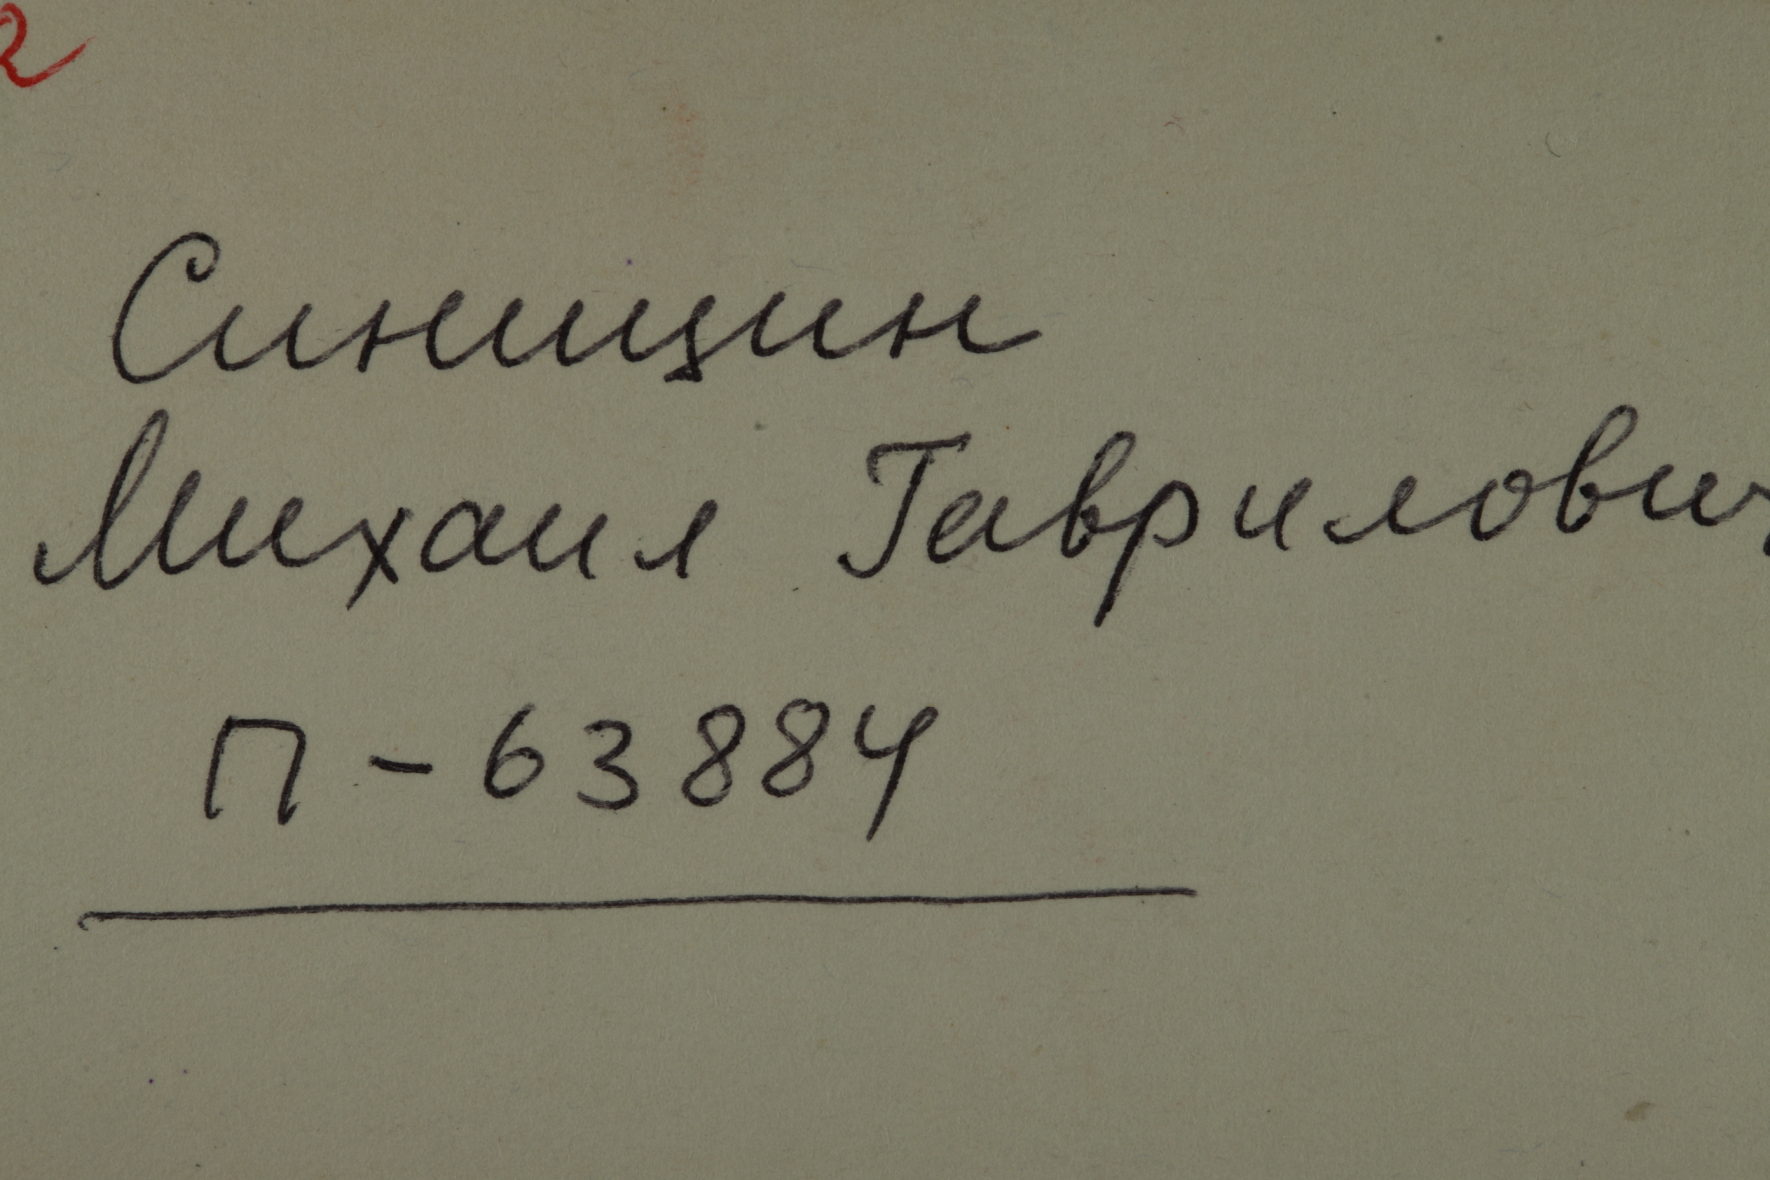 Синицин
Михаил Гаврилович
П-63884